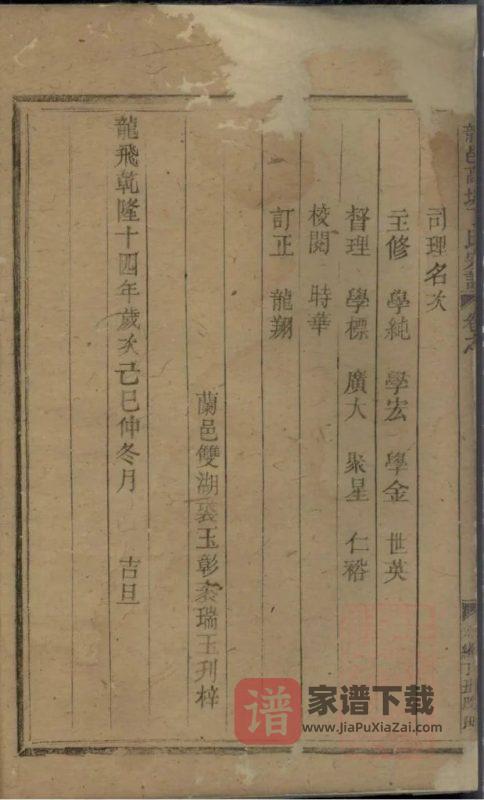 司理名次
主修 學純 學宏 學金 世英
督理 學標 廣大 聚星 仁裕
校閱 時華
訂正 龍翔
蘭邑雙湖裘玉彰裘瑞玉刊梓
龍飛乾隆十四年歲次己巳仲冬月 吉旦
谱 家谱下载
www.JiaPuXiaZai.com